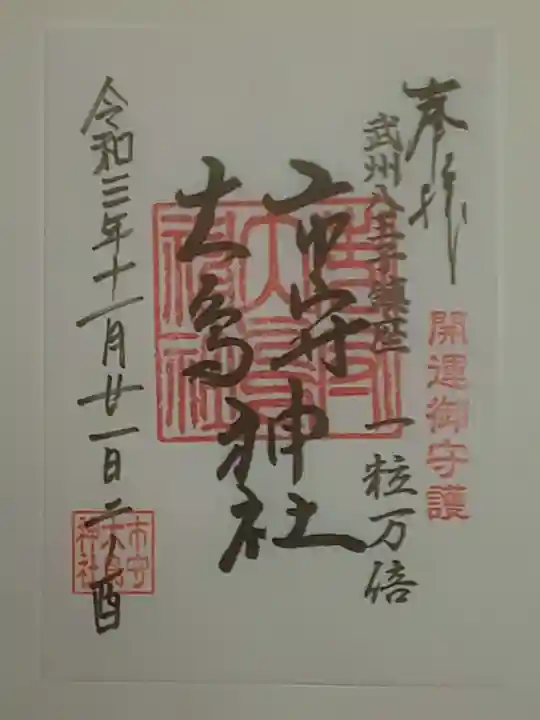 奉拝
武州八王子鎮座
開運御守護
一粒万倍
市守神社
大鳥神社
令和三年十一月廿一日二ノ酉
市守
大鳥
神社